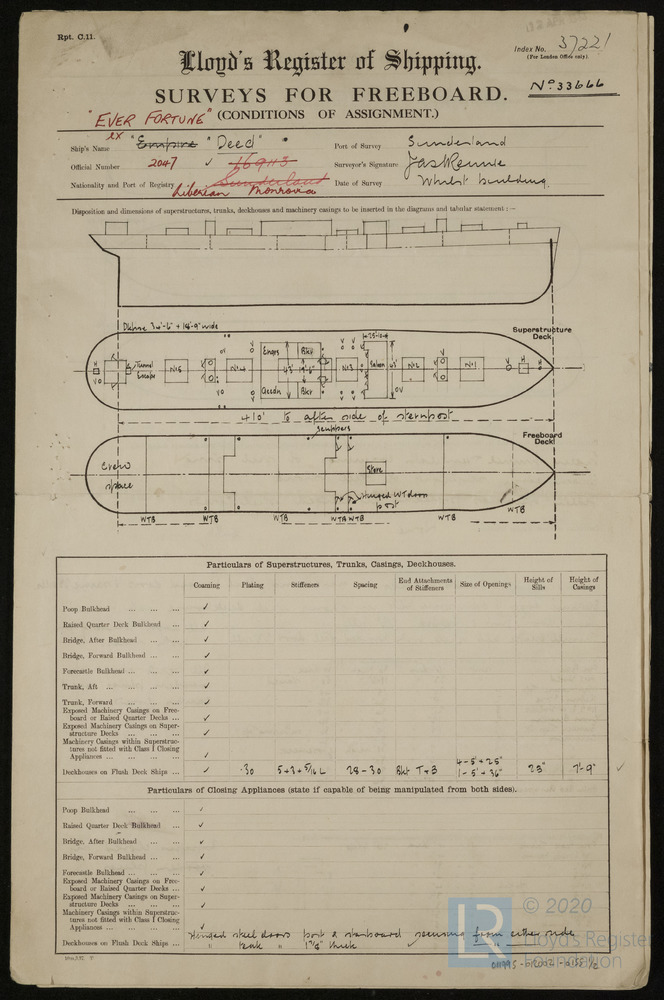 Rpt. C.11.
Index No. 37221
(For London Office only).
Lloyd's Register of Shipping.
No 33666
SURVEYS FOR FREEBOARD.
"EVER FORTUNE" (CONDITIONS OF ASSIGNMENT.)
ex
Ship's Name "Empire "Deed"
Port of Survey Sunderland
Official Number 2047 ✓ 169113
Surveyor's Signature Jas Rennie
Nationality and Port of Registry Sunderland
Liberian Monrovia
Date of Survey Whilst building.
Disposition and dimensions of superstructures, trunks, deckhouses and machinery casings to be inserted in the diagrams and tabular statement :—
Superstructure
Deck
Tunnel
Escape
No5
No4
Engrs
Bkr
No3
Saloon
No2
No1
Bkr
410' to after side of sternpost
Scuppers
Freeboard
Deck
Crew
space
Store
Hinged WT door
WTB WTB WTB WTB WTB WTB WTB
Particulars of Superstructures, Trunks, Casings, Deckhouses.
Coaming Plating Stiffeners Spacing End Attachments of Stiffeners Size of Openings Height of Sills Height of Casings
Poop Bulkhead ... ... ... ✓
Raised Quarter Deck Bulkhead ... ✓
Bridge, After Bulkhead ... ... ✓
Bridge, Forward Bulkhead ... ... ✓
Forecastle Bulkhead ... ... ... ✓
Trunk, Aft ... ... ... ... ✓
Trunk, Forward ... ... ... ✓
Exposed Machinery Casings on Free-
board or Raised Quarter Decks ... ✓
Exposed Machinery Casings on Super-
structure Decks ... ... ... ✓
Machinery Casings within Superstruc-
tures not fitted with Class I Closing
Appliances ... ... ... ... ✓
Deckhouses on Flush Deck Ships ... ✓ .30 5+3+5/16 L 28-30 Bkt T+B 4-5'+25" 1-5'+36" 23" 7'-9" ✓
Particulars of Closing Appliances (state if capable of being manipulated from both sides).
Poop Bulkhead ... ... ... ✓
Raised Quarter Deck Bulkhead ... ✓
Bridge, After Bulkhead ... ... ✓
Bridge, Forward Bulkhead ... ... ✓
Forecastle Bulkhead ... ... ... ✓
Exposed Machinery Casings on Free-
board or Raised Quarter Decks ... ✓
Exposed Machinery Casings on Super-
structure Decks ... ... ... ✓
Machinery Casings within Superstruc-
tures not fitted with Class I Closing
Appliances ... ... ... ... ✓
Hinged steel doors port & starboard securing from either side
Deckhouses on Flush Deck Ships ... teak " 1¾" thick " "
LR
© 2020
Lloyd's Register
Foundation